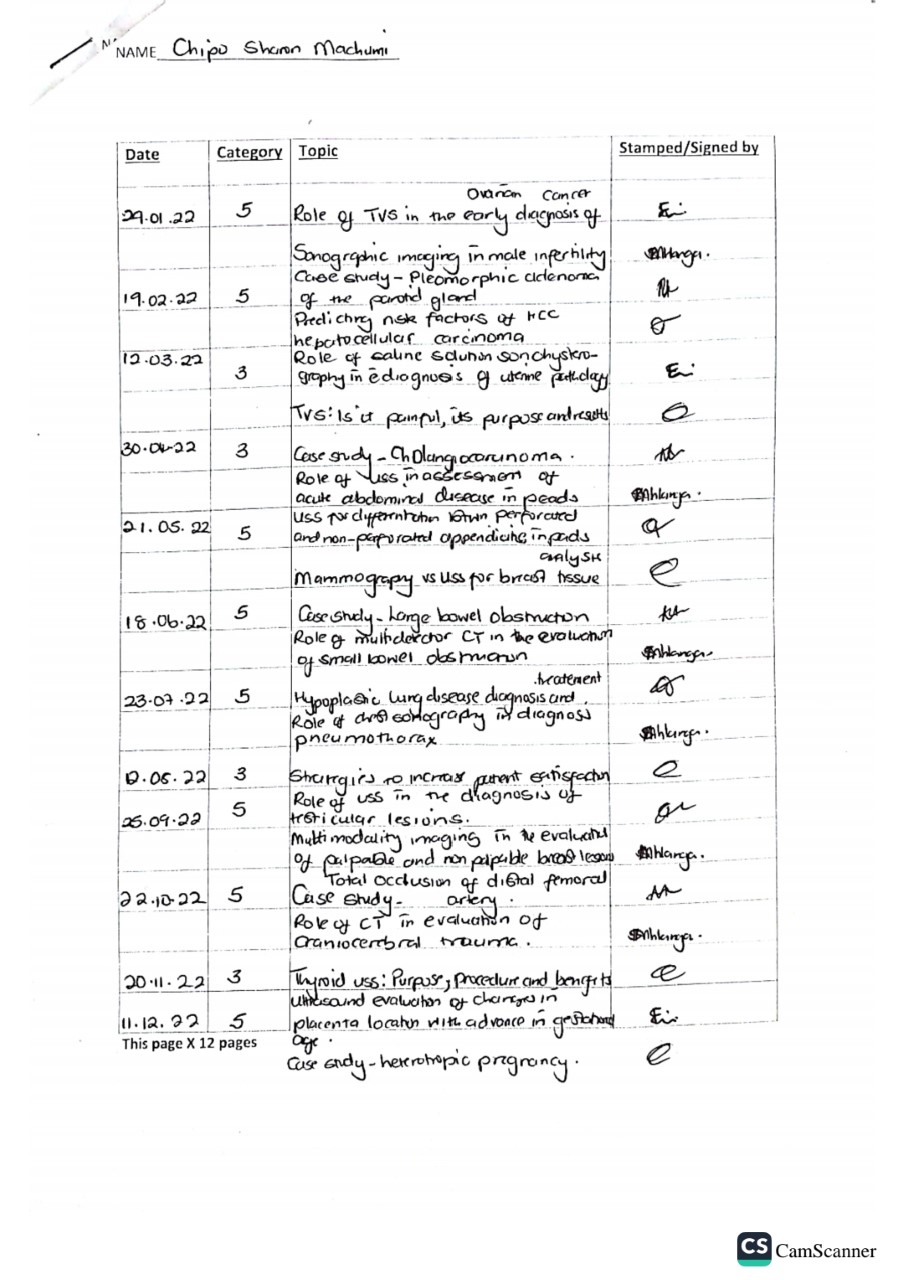 NAME Chipo Sharon Machumi
Date Category Topic Stamped/Signed by
Ovarian Cancer
29.01.22 5 Role of TVS in the early diagnosis of
Sonographic imaging in male infertility
Case study - Pleomorphic adenoma
19.02.22 5 of the parotid gland
Predicting risk factors of HCC
hepatocellular carcinoma
12.03.22 Role of saline solution sonohystero-
3 graphy in diagnosis of uterine pathology
TVS: Is it painful, its purpose and results
30.04.22 3 Case study - Cholangiocarcinoma.
Role of USS in assessment of
acute abdominal disease in paeds
21.05.22 USS for differentiation btwn perforated
5 and non-perforated appendicitis in paeds
analysis
Mammograpy vs USS for breast tissue
18.06.22 5 Case study - Large bowel obstruction
Role of multidetector CT in the evaluation
of small bowel obstruction
treatement
23.07.22 5 Hypoplastic lung disease diagnosis and
Role of chest sonography in diagnosis
pneumothorax
3 Strategies to increase patient satisfaction
5 Role of USS in the diagnosis of
25.09.22 testicular lesions.
Multimodality imaging in the evaluation
of palpable and non palpable breast lesions
Total occlusion of distal femoral
22.10.22 5 Case study - artery.
Role of CT in evaluation of
craniocerebral trauma.
20.11.22 3 Thyroid USS: Purpose, procedure and benefits
Ultrasound evaluation of changes in
11.12.22 5 placenta location with advance in gestational
This page X 12 pages age.
Case study - heterotropic pregnancy.
CS CamScanner